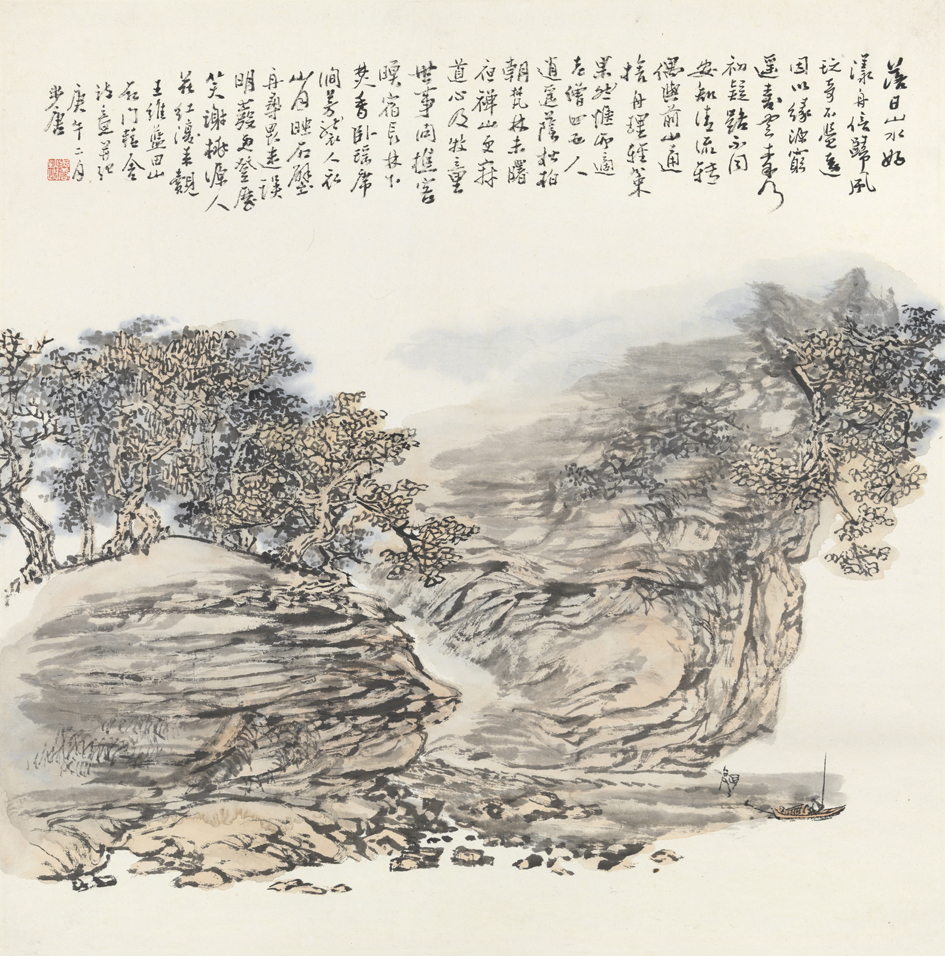 落日山水好
漾舟信歸風
玩奇不覺遠
因以緣源窮
遥愛雲木秀
初疑路不同
安知清流轉
偶與前山通
捨舟理輕策
果然愜所適
老僧四五人
逍遥蔭松柏
朝梵林未曙
夜禅山更寂
道心及牧童
世事問樵客
暝宿長林下
焚香臥瑶席
澗芳襲人衣
山月映石壁
再尋畏迷誤
明發更登歷
笑謝桃源人
花紅復来覿
王維藍田山
石門精舍
詩意并記
庚午二月